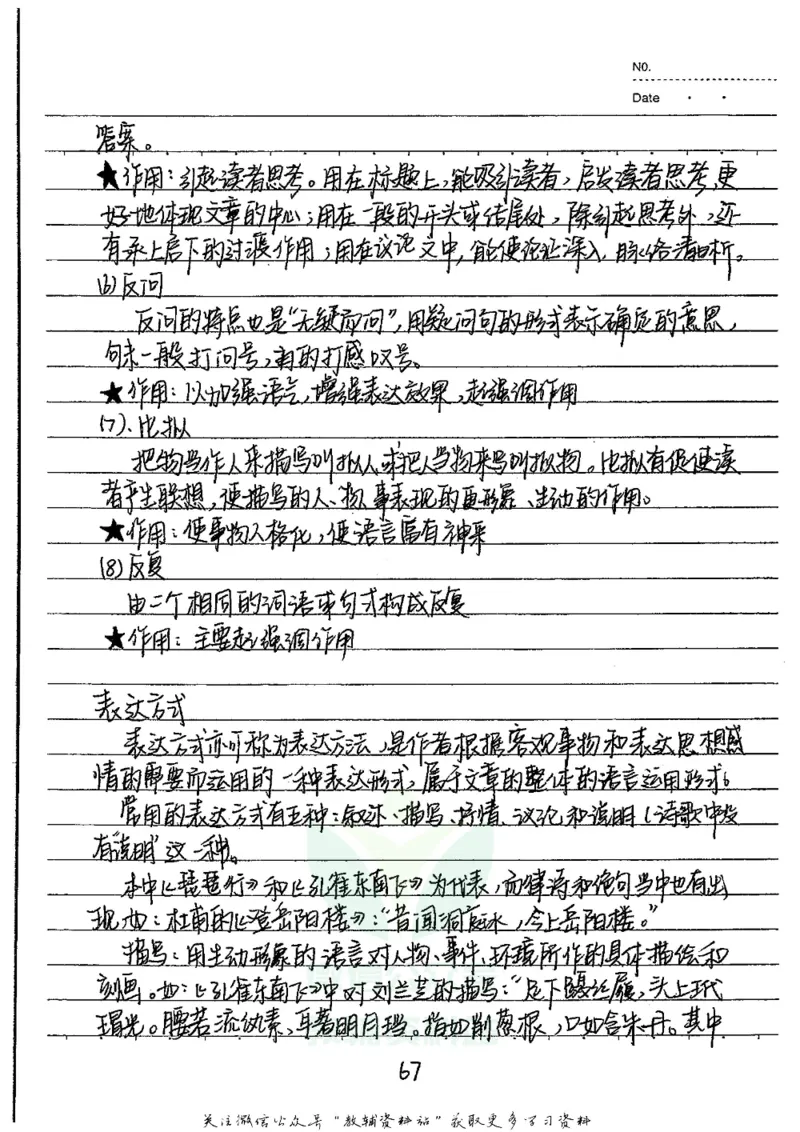 NO.
Date
答案。
★作用：引起读者思考。用在标题上，能吸引读者，启发读者思考，更
好地体现文章的中心；用在一段的开头或结尾处，除引起思考外，还
有承上启下的过渡作用；用在议论文中，能使论证深入，脉络清晰。
(6)反问
反问的特点也是“无疑而问”，用疑问句的形式表示确定的意思，
句末一般打问号，有的打感叹号。
★作用：以加强语气，增强表达效果，起强调作用
(7)、比拟
把物当作人来描写叫拟人，或把人当物来写叫拟物。比拟有促使读
者产生联想，使描写的人、物、事表现的更形象、生动的作用。
★作用：使事物人格化，使语言富有神采
(8)反复
由二个相同的词语或句式构成反复
★作用：主要起强调作用
表达方式
表达方式亦可称为表达方法，是作者根据客观事物和表达思想感
情的需要而运用的一种表达形式，属于文章的整体的语言运用形式。
常用的表达方式有五种：叙述、描写、抒情、议论、和说明（诗歌中没
有“说明”这一种。
本中《琵琶行》和《孔雀东南飞》为代表，而律诗和绝句当中也有出
现，如：杜甫的《登岳阳楼》：“昔闻洞庭水，今上岳阳楼。”
描写：用生动形象的语言对人物、事件、环境所作的具体描绘和
刻画。如：《孔雀东南飞》中对刘兰芝的描写：“足下蹑丝履，头上玳
瑁光。腰若流纨素，耳著明月珰。指如削葱根，口如含朱丹。其中
67
关注微信公众号“教辅资料站”获取更多学习资料